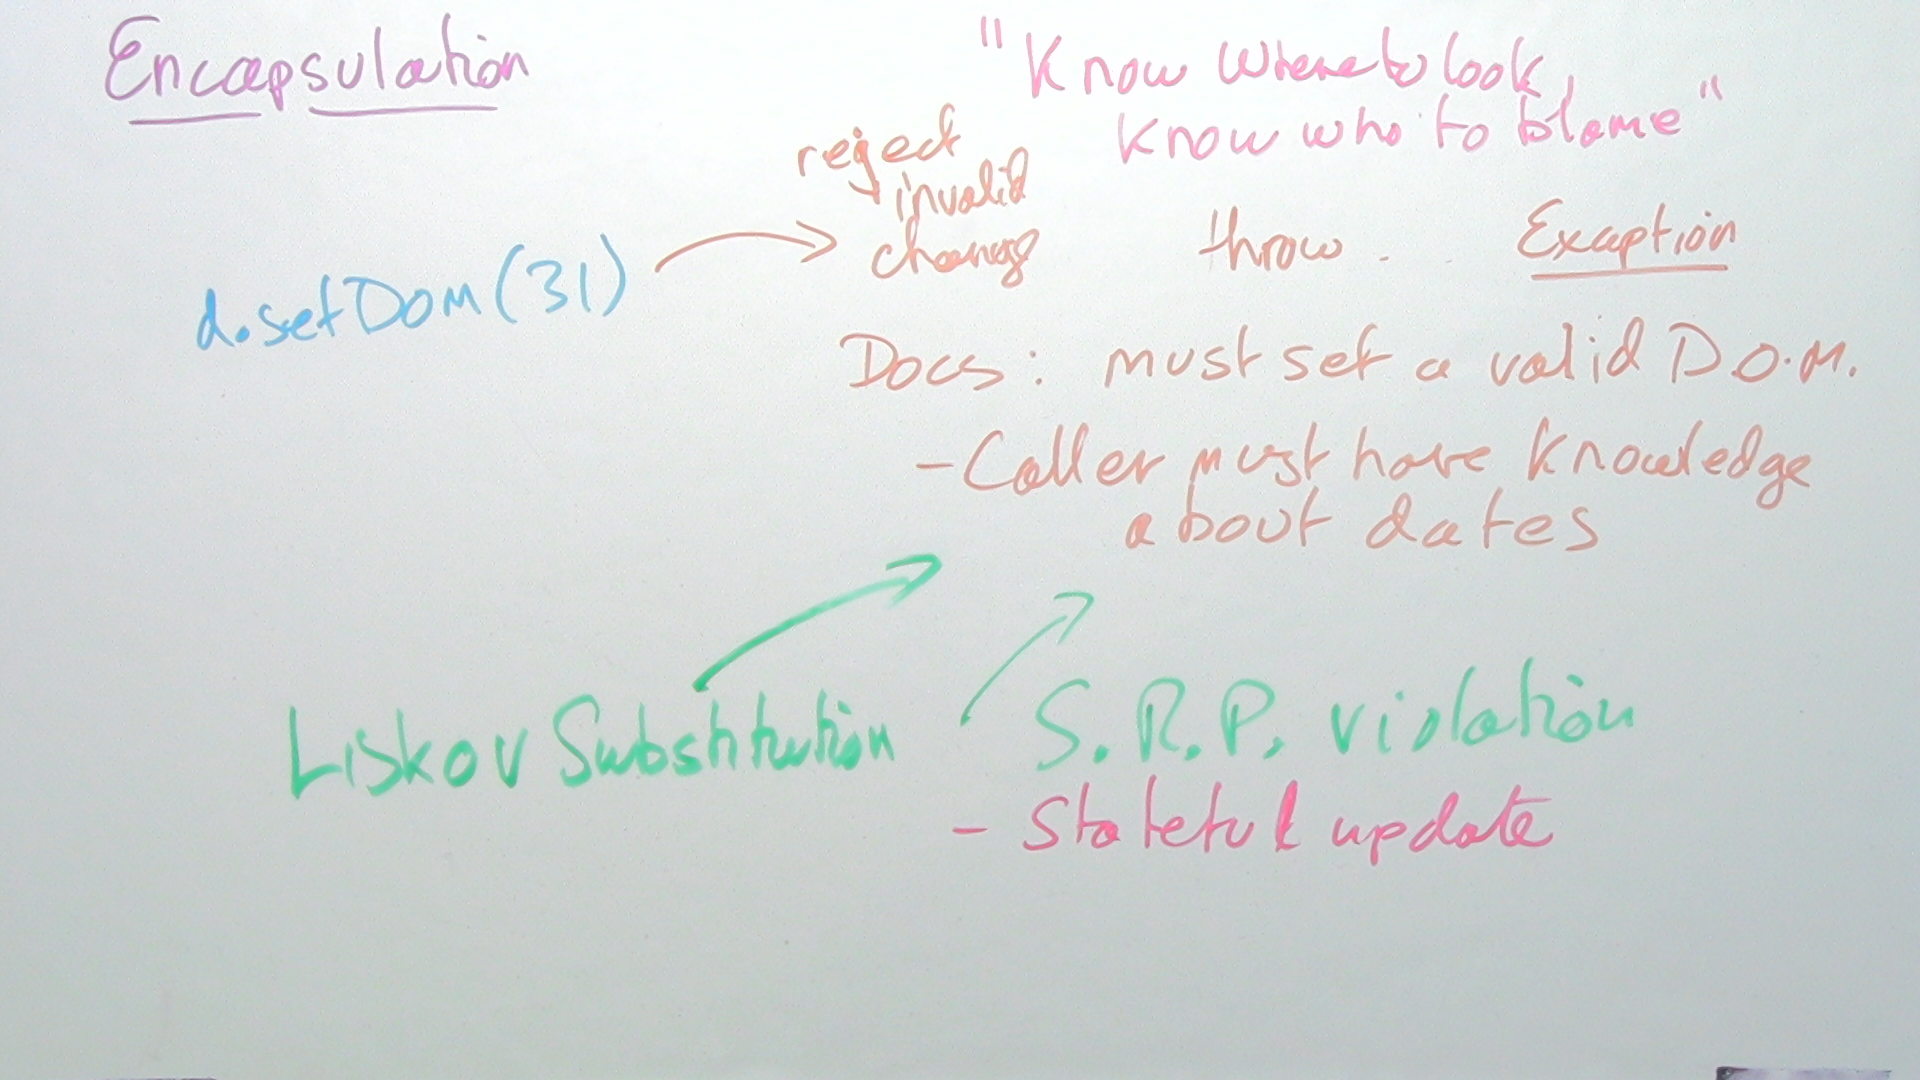 Encapsulation
"Know Where to look,
know who to blame"
reject
invalid
change
throw . . Exception
d.setDOM(31)
Docs: must set a valid D.O.M.
- Caller must have knowledge
about dates
Liskov Substitution
S.R.P. violation
- Stateful update